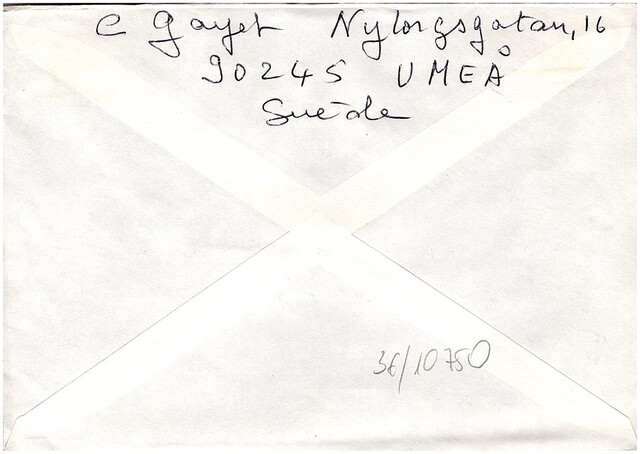 C Gayet Nylorgsgatan, 16
90245 UMEÅ
Suède
36/10750